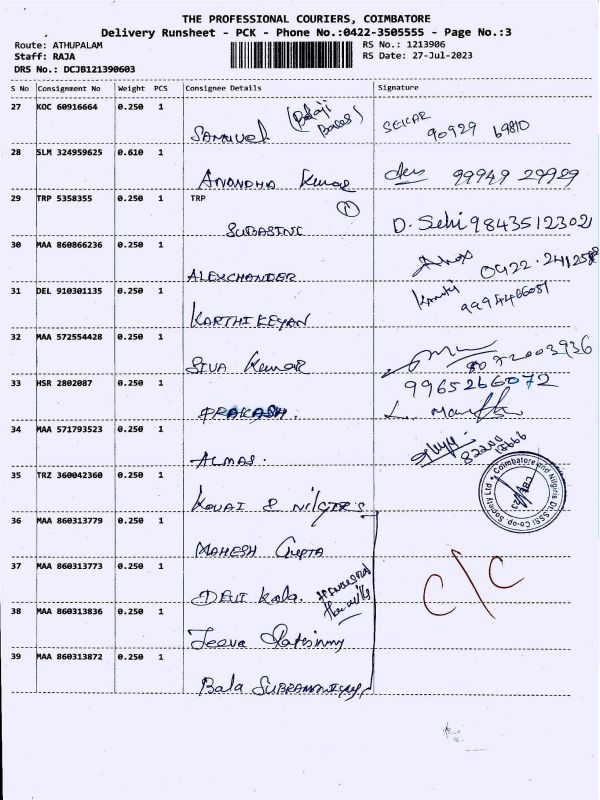 THE PROFESSIONAL COURIERS, COIMBATORE
Delivery Runsheet - PCK - Phone No.:0422-3505555 - Page No.:3
Route: ATHUPALAM
RS No.: 1213906
Staff: RAJA
RS Date: 27-Jul-2023
DRS No.: DCJB121390603
S No Consignment No Weight PCS Consignee Details Signature
27 KOC 60916664 0.250 1
SAMUVEL (Balaji
SEKAR
90929 69810
28 SLM 324959625 0.610 1
ANANDHA Kumar 99949 29929
29 TRP 5358355 0.250 1 TRP
1
SUBASINI D. Selvi 9843512302
30 MAA 860866236 0.250 1
ALEXCHANDER
31 DEL 910301135 0.250 1
KARTHIKEYAN
32 MAA 572554428 0.250 1
SIVA Kumar 8072003936
33 HSR 2802087 0.250 1 9965266072
PRAKASH.
34 MAA 571793523 0.250 1
ALMAS.
35 TRZ 360042360 0.250 1
Coimbatore and Nilgiris Dt. SSSI Co-op. Society Ltd
KOVAI & NILGIRIS
36 MAA 860313779 0.250 1
MAHESH GUPTA
37 MAA 860313773 0.250 1
DEVI Kala.
C/C
38 MAA 860313836 0.250 1
Jeeva
39 MAA 860313872 0.250 1
Bala SUBRAMANIYAM